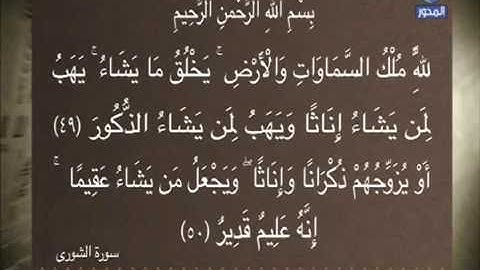 المحور
بِسْمِ اللهِ الرَّحْمَنِ الرَّحِيمِ
لِلَّهِ مُلْكُ السَّمَاوَاتِ وَالْأَرْضِ ۚ يَخْلُقُ مَا يَشَاءُ ۚ يَهَبُ
لِمَن يَشَاءُ إِنَاثًا وَيَهَبُ لِمَن يَشَاءُ الذُّكُورَ (٤٩)
أَوْ يُزَوِّجُهُمْ ذُكْرَانًا وَإِنَاثًا ۖ وَيَجْعَلُ مَن يَشَاءُ عَقِيمًا ۚ
إِنَّهُ عَلِيمٌ قَدِيرٌ (٥٠)
سورة الشورى